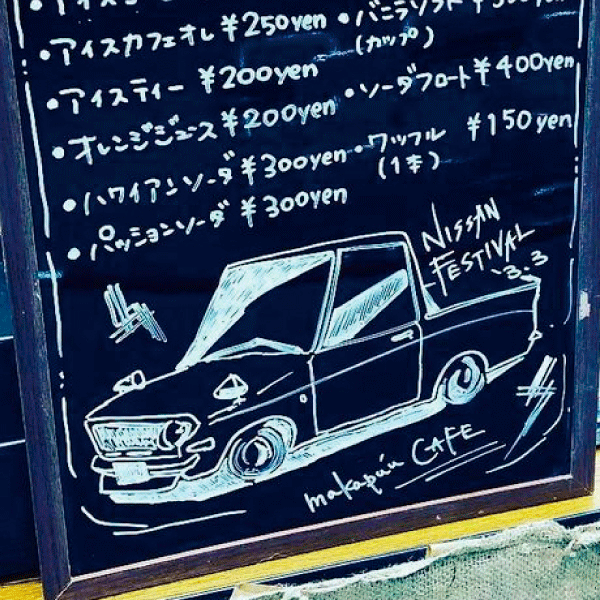 ・アイスカフェオレ ¥250yen
・アイスティー ¥200yen
・オレンジジュース ¥200yen
・ハワイアンソーダ ¥300yen
・パッションソーダ ¥300yen
・バニラソフト
(カップ)
・ソーダフロート ¥400yen
・ワッフル ¥150yen
(1本)
NISSAN
FESTIVAL
'3.3
makapu'u CAFE